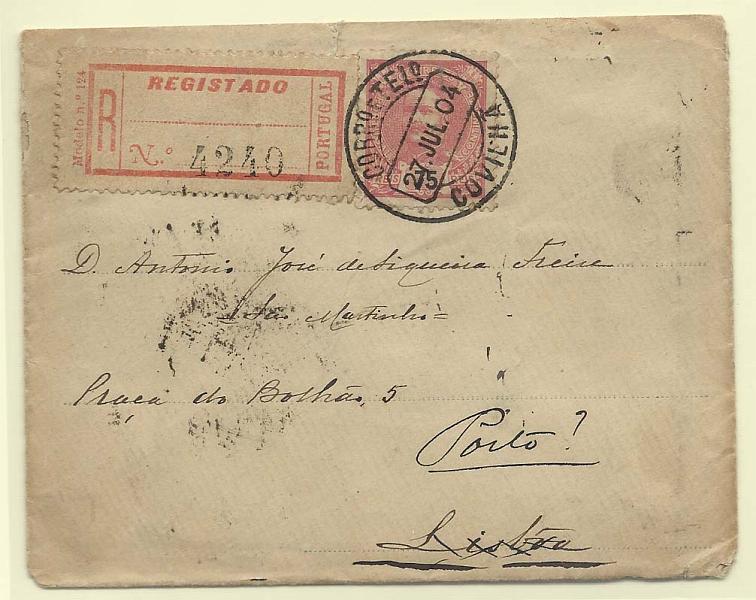 Modelo n.º 124
R
REGISTADO
N.º 4240
PORTUGAL
CORRO E TELO
27 JUL. 04
COVILHA
D. António José de Siqueira Freire
São Martinho =
Praça do Bolhão, 5
Porto?
Lisbôa